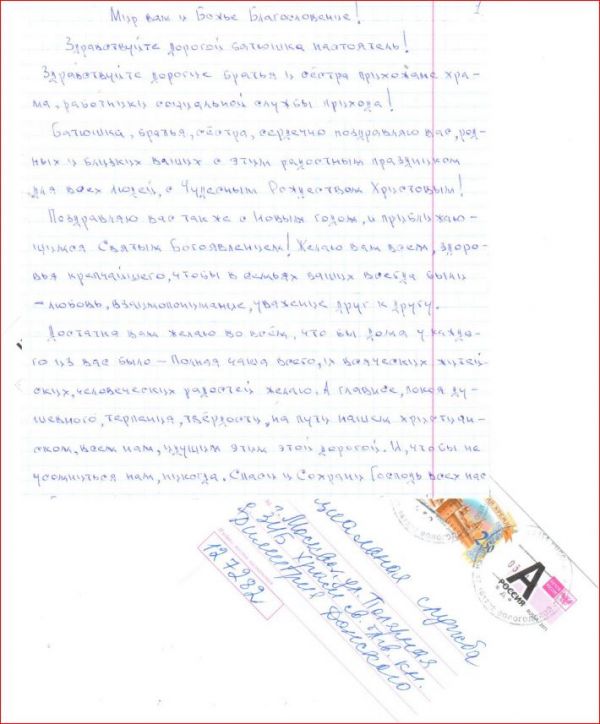 Мир вам и Божье Благословение!
1
Здравствуйте дорогой батюшка настоятель!
Здравствуйте дорогие братья и сёстра прихожане хра-
ма, работники социальной службы прихода!
Батюшка, братья, сёстра, сердечно поздравляю вас, род-
ных и близких ваших с этим радостным праздником
для всех людей, с Чудесным Рождеством Христовым!
Поздравляю вас также с Новым годом, и приближаю-
щимся Святым Богоявлением! Желаю вам всем, здоро-
вья крепчайшего, чтобы в семьях ваших всегда были
- любовь, взаимопонимание, уважение друг к другу.
Достатка вам желаю во всём, что бы дома у каждо-
го из вас было - Полная чаша всего, и всяческих житей-
ских, человеческих радостей желаю. А главное, покоя ду-
шевного, терпения, твёрдости, на пути нашем христиан-
ском, всем нам, идущим этим этой дорогой. И, чтобы не
усомниться нам, никогда. Спаси и Сохрани Господь всех нас
циальная служба
г. Москва, ул. Полярная
Храм св. блгв. кн.
Димитрия Донского
127282
А
РОССИЯ